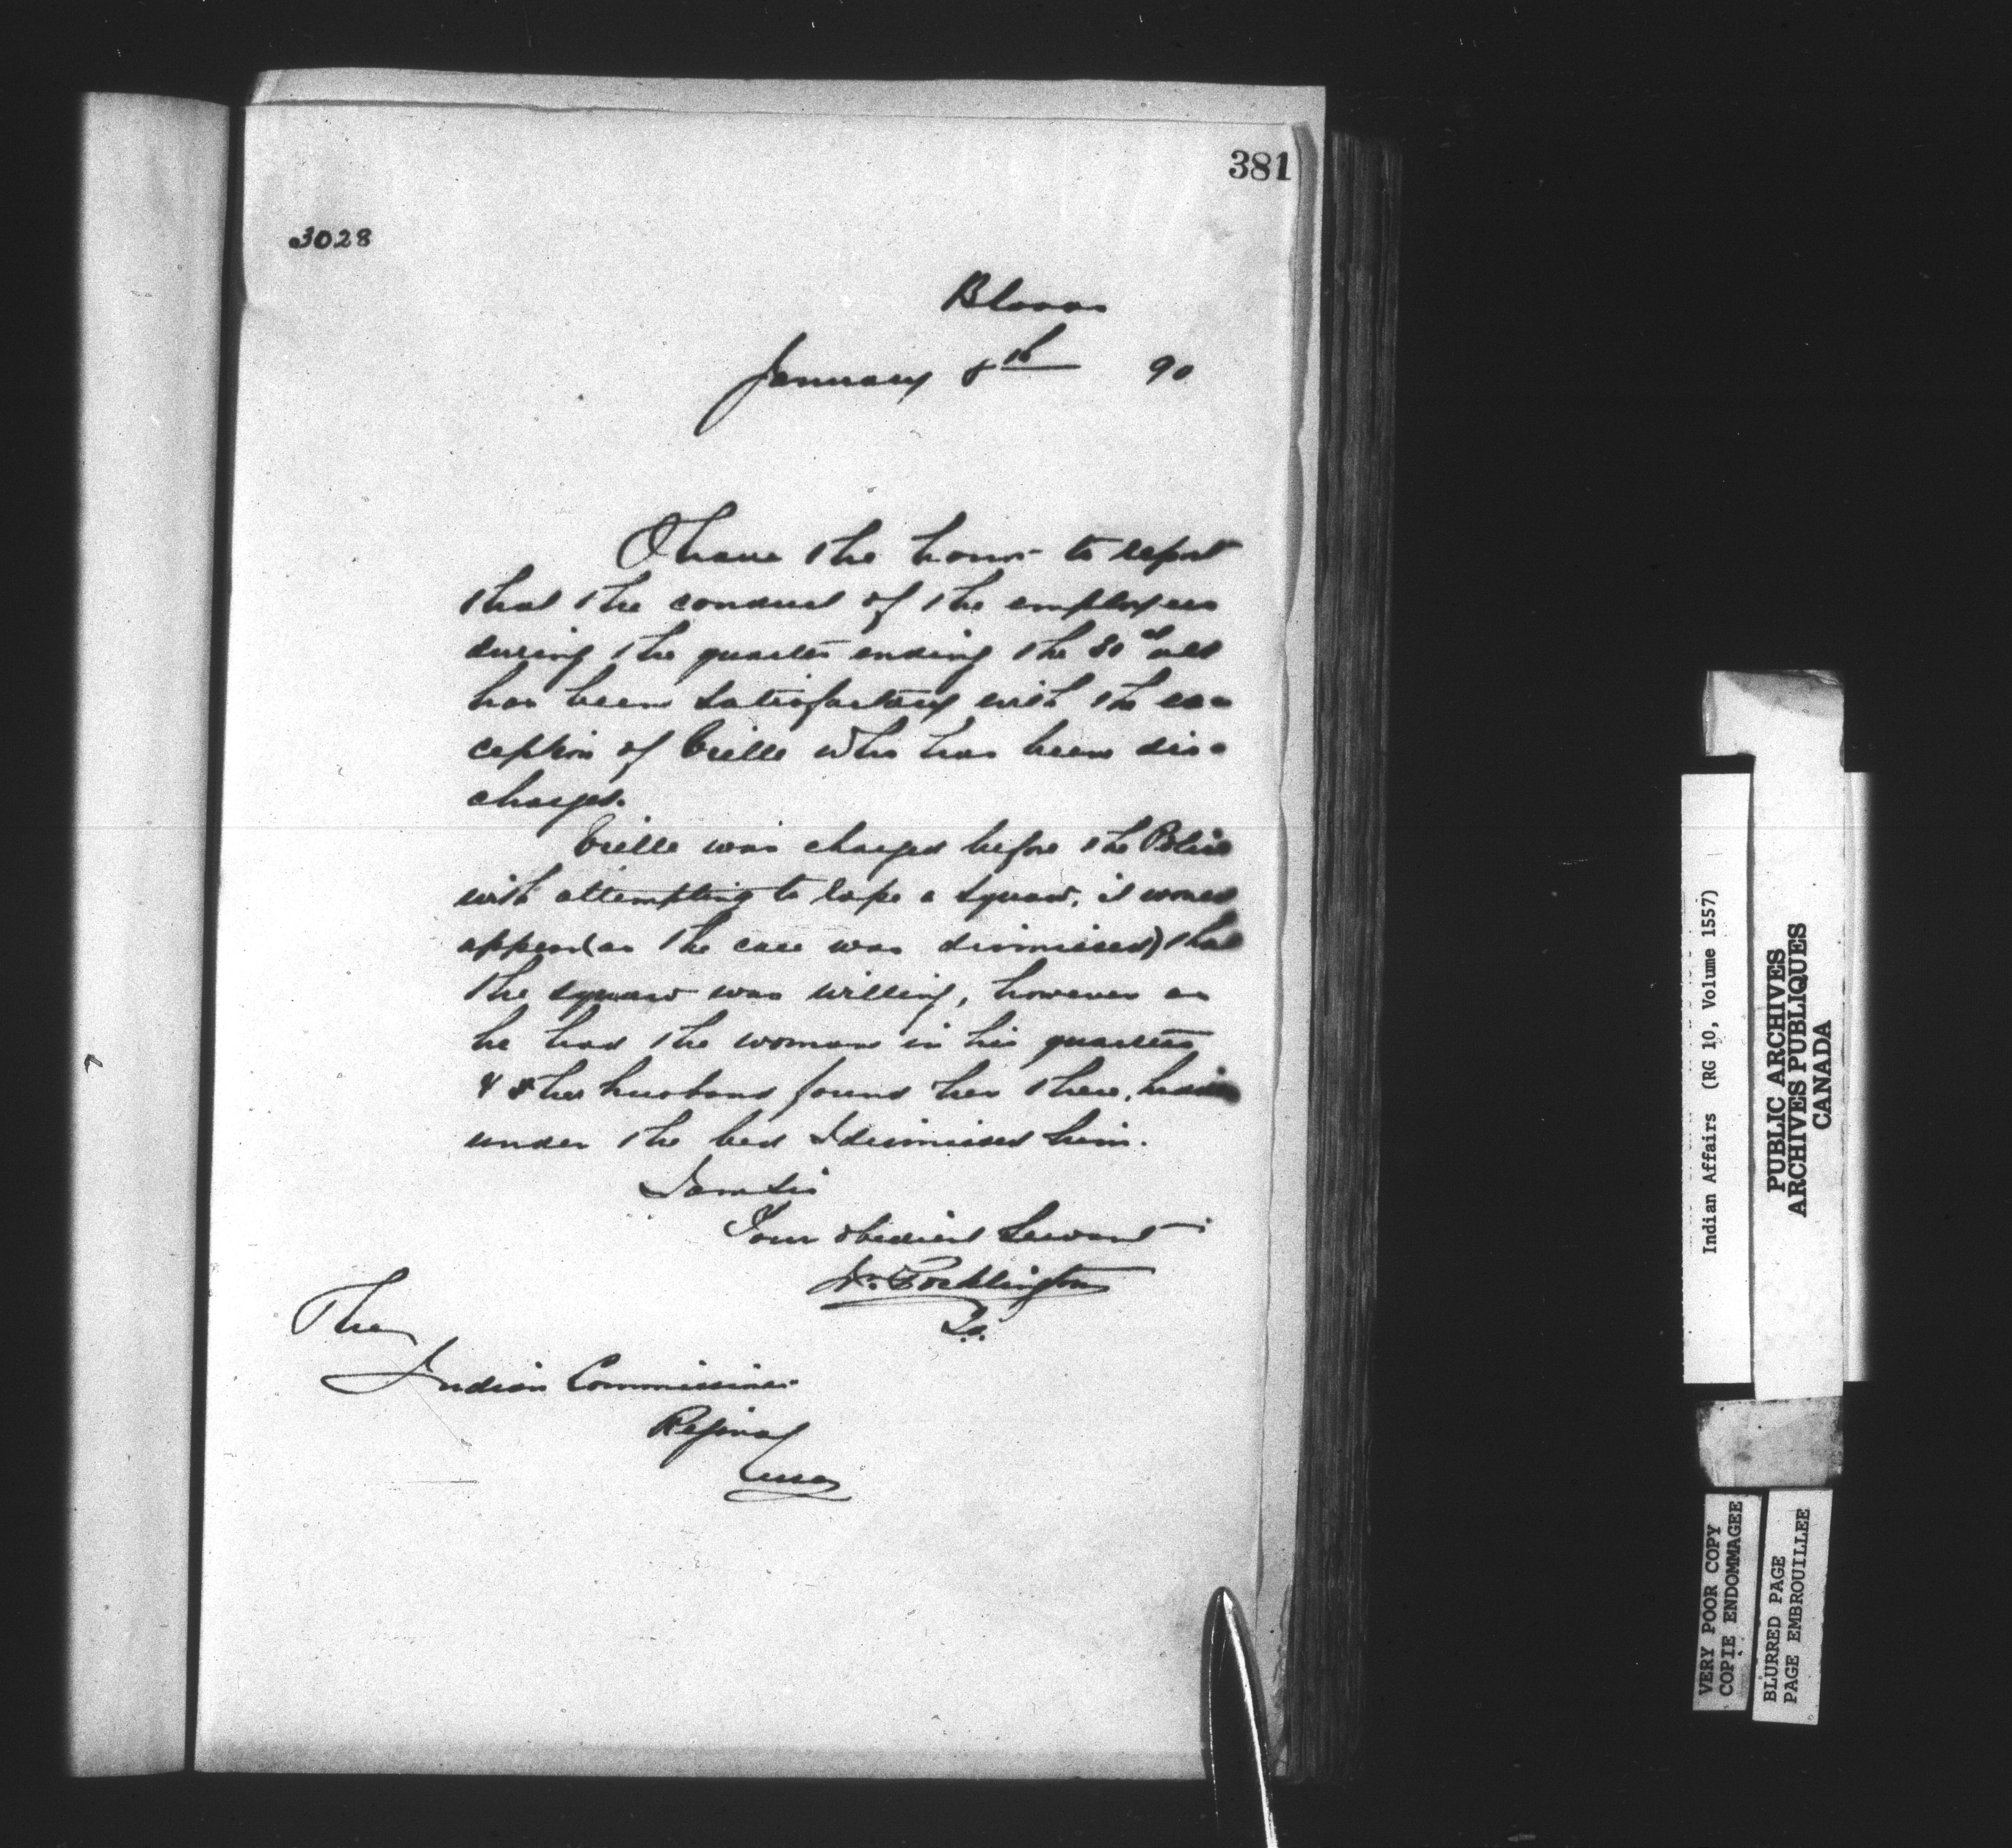 381
3028
Bloods
January 8th 90
I have the honor to report
that the conduct of the employees
during the quarter ending the 31st ult
has been satisfactory with the ex=
ception of who has been dis=
charged.
was charged before the Police
with attempting to rape a squaw, it would
appear (as the case was dismissed) that
the squaw was willing, however as
he had the woman in his quarters
& her husband found her there,
under the bed I dismissed him.
I am Sir
Your obedient Servant
W. Pocklington
The
Indian Commissioner
Regina
Indian Affairs (RG 10, Volume 1557)
PUBLIC ARCHIVES
ARCHIVES PUBLIQUES
CANADA
VERY POOR COPY
COPIE ENDOMMAGEE
BLURRED PAGE
PAGE EMBROUILLEE